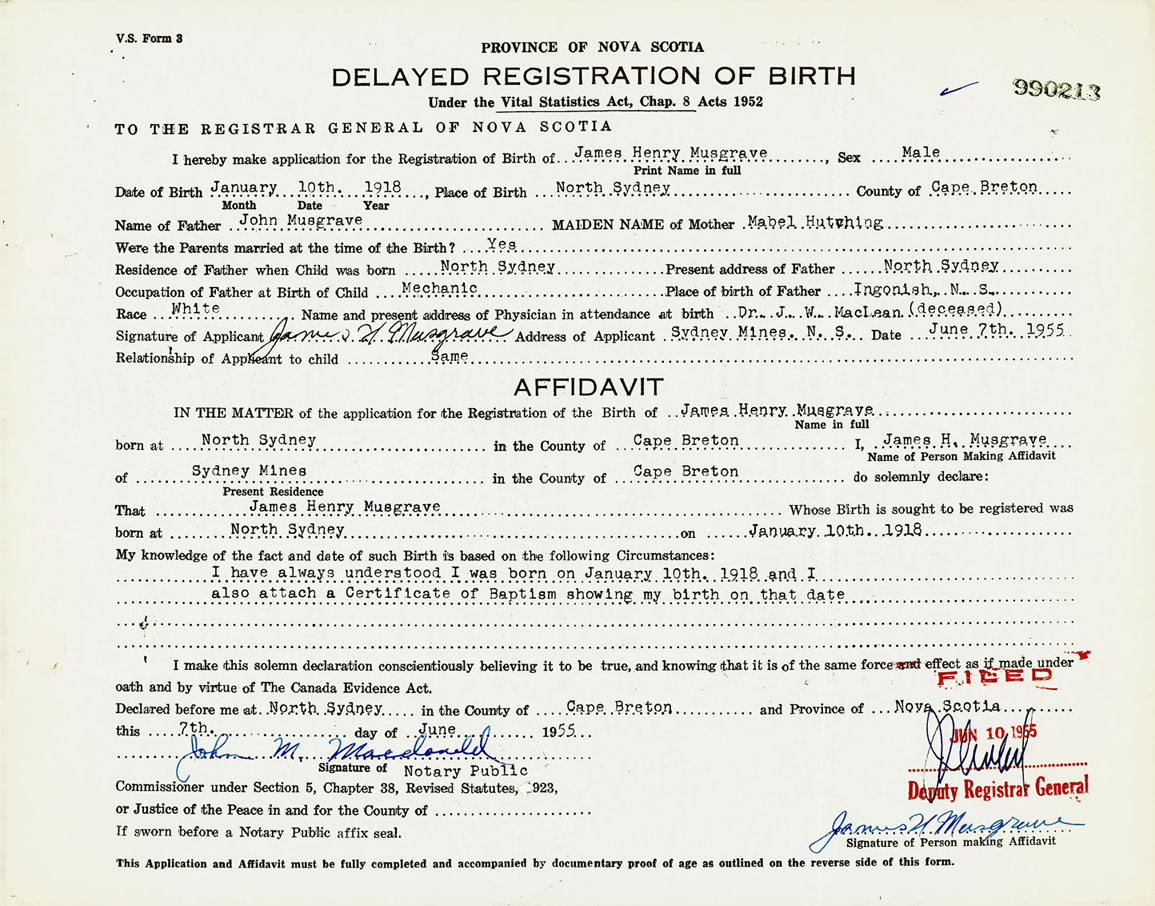 V.S. Form 3
PROVINCE OF NOVA SCOTIA
DELAYED REGISTRATION OF BIRTH
990213
Under the Vital Statistics Act, Chap. 8 Acts 1952
TO THE REGISTRAR GENERAL OF NOVA SCOTIA
I hereby make application for the Registration of Birth of James Henry Musgrave, Sex Male
Print Name in full
Date of Birth January 10th. 1918, Place of Birth North Sydney County of Cape Breton
Month Date Year
Name of Father John Musgrave MAIDEN NAME of Mother Mabel Hutching
Were the Parents married at the time of the Birth? Yes
Residence of Father when Child was born North Sydney Present address of Father North Sydney
Occupation of Father at Birth of Child Mechanic Place of birth of Father Ingonish, N. S.
Race White Name and present address of Physician in attendance at birth Dr. J. W. MacLean (deceased)
Signature of Applicant James H Musgrave Address of Applicant Sydney Mines, N. S. Date June 7th. 1955
Relationship of Applicant to child Same
AFFIDAVIT
IN THE MATTER of the application for the Registration of the Birth of James Henry Musgrave
Name in full
born at North Sydney in the County of Cape Breton I, James H. Musgrave
Name of Person Making Affidavit
of Sydney Mines in the County of Cape Breton do solemnly declare:
Present Residence
That James Henry Musgrave Whose Birth is sought to be registered was
born at North Sydney on January 10th. 1918
My knowledge of the fact and date of such Birth is based on the following Circumstances:
I have always understood I was born on January 10th. 1918 and I
also attach a Certificate of Baptism showing my birth on that date
I make this solemn declaration conscientiously believing it to be true, and knowing that it is of the same force and effect as if made under
oath and by virtue of The Canada Evidence Act.
FILED
Declared before me at North Sydney in the County of Cape Breton and Province of Nova Scotia
this 7th. day of June 1955
JUN 10 1955
John M. Macdonald
Signature of Notary Public
Deputy Registrar General
Commissioner under Section 5, Chapter 38, Revised Statutes, 1923,
or Justice of the Peace in and for the County of
James H Musgrave
If sworn before a Notary Public affix seal.
Signature of Person making Affidavit
This Application and Affidavit must be fully completed and accompanied by documentary proof of age as outlined on the reverse side of this form.